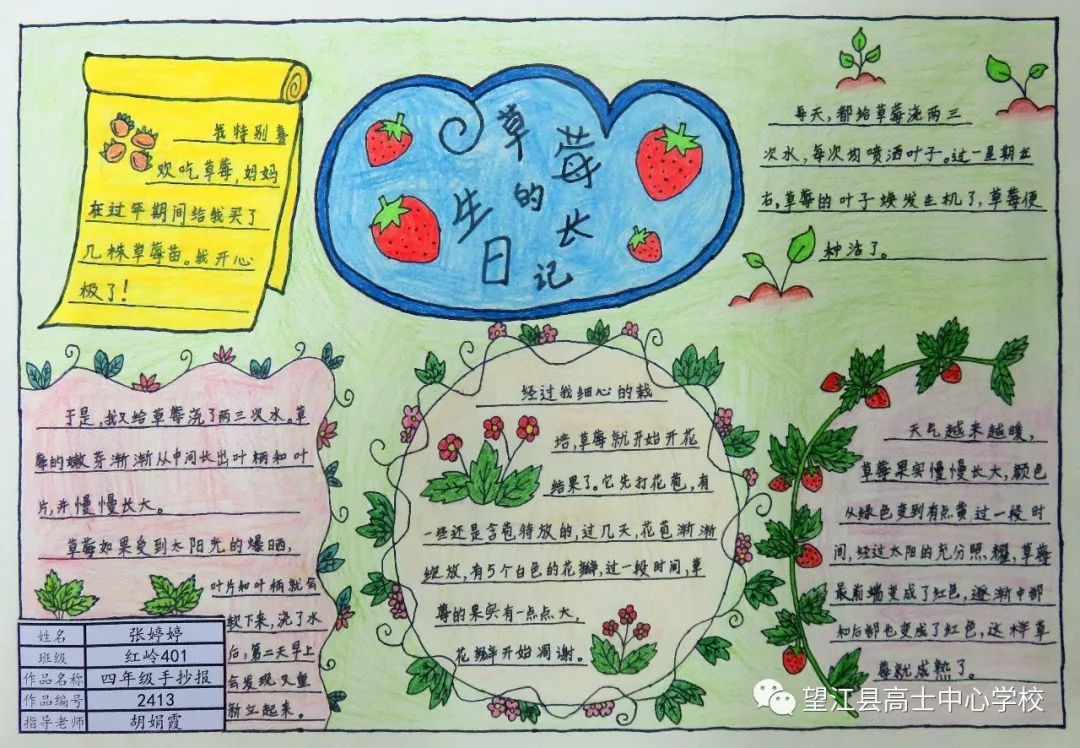 草莓的
生长日记
我特别喜
欢吃草莓,妈妈
在过年期间给我买了
几株草莓苗。我开心
极了!
每天,都给草莓浇两三
次水,每次均喷洒叶子。过一星期左
右,草莓的叶子焕发生机了,草莓便
种活了。
于是,我又给草莓浇了两三次水。草
莓的嫩芽渐渐从中间长出叶柄和叶
片,并慢慢长大。
草莓如果受到太阳光的爆晒,
叶片和叶柄就会
软下来,浇了水
后,第二天早上
会发现又重
新立起来。
经过我细心的栽
培,草莓就开始开花
结果了。它先打花苞,有
一些还是含苞待放的,过几天,花苞渐渐
绽放,有5个白色的花瓣,过一段时间,草
莓的果实有一点点大,
花瓣开始凋谢。
天气越来越暖,
草莓果实慢慢长大,颜色
从绿色变到有点黄过一段时
间,经过太阳的充分照耀,草莓
最前端变成了红色,逐渐中部
和后部也变成了红色,这样草
莓就成熟了。
姓名 张婷婷
班级 红岭401
作品名称 四年级手抄报
作品编号 2413
指导老师 胡娟霞
望江县高士中心学校